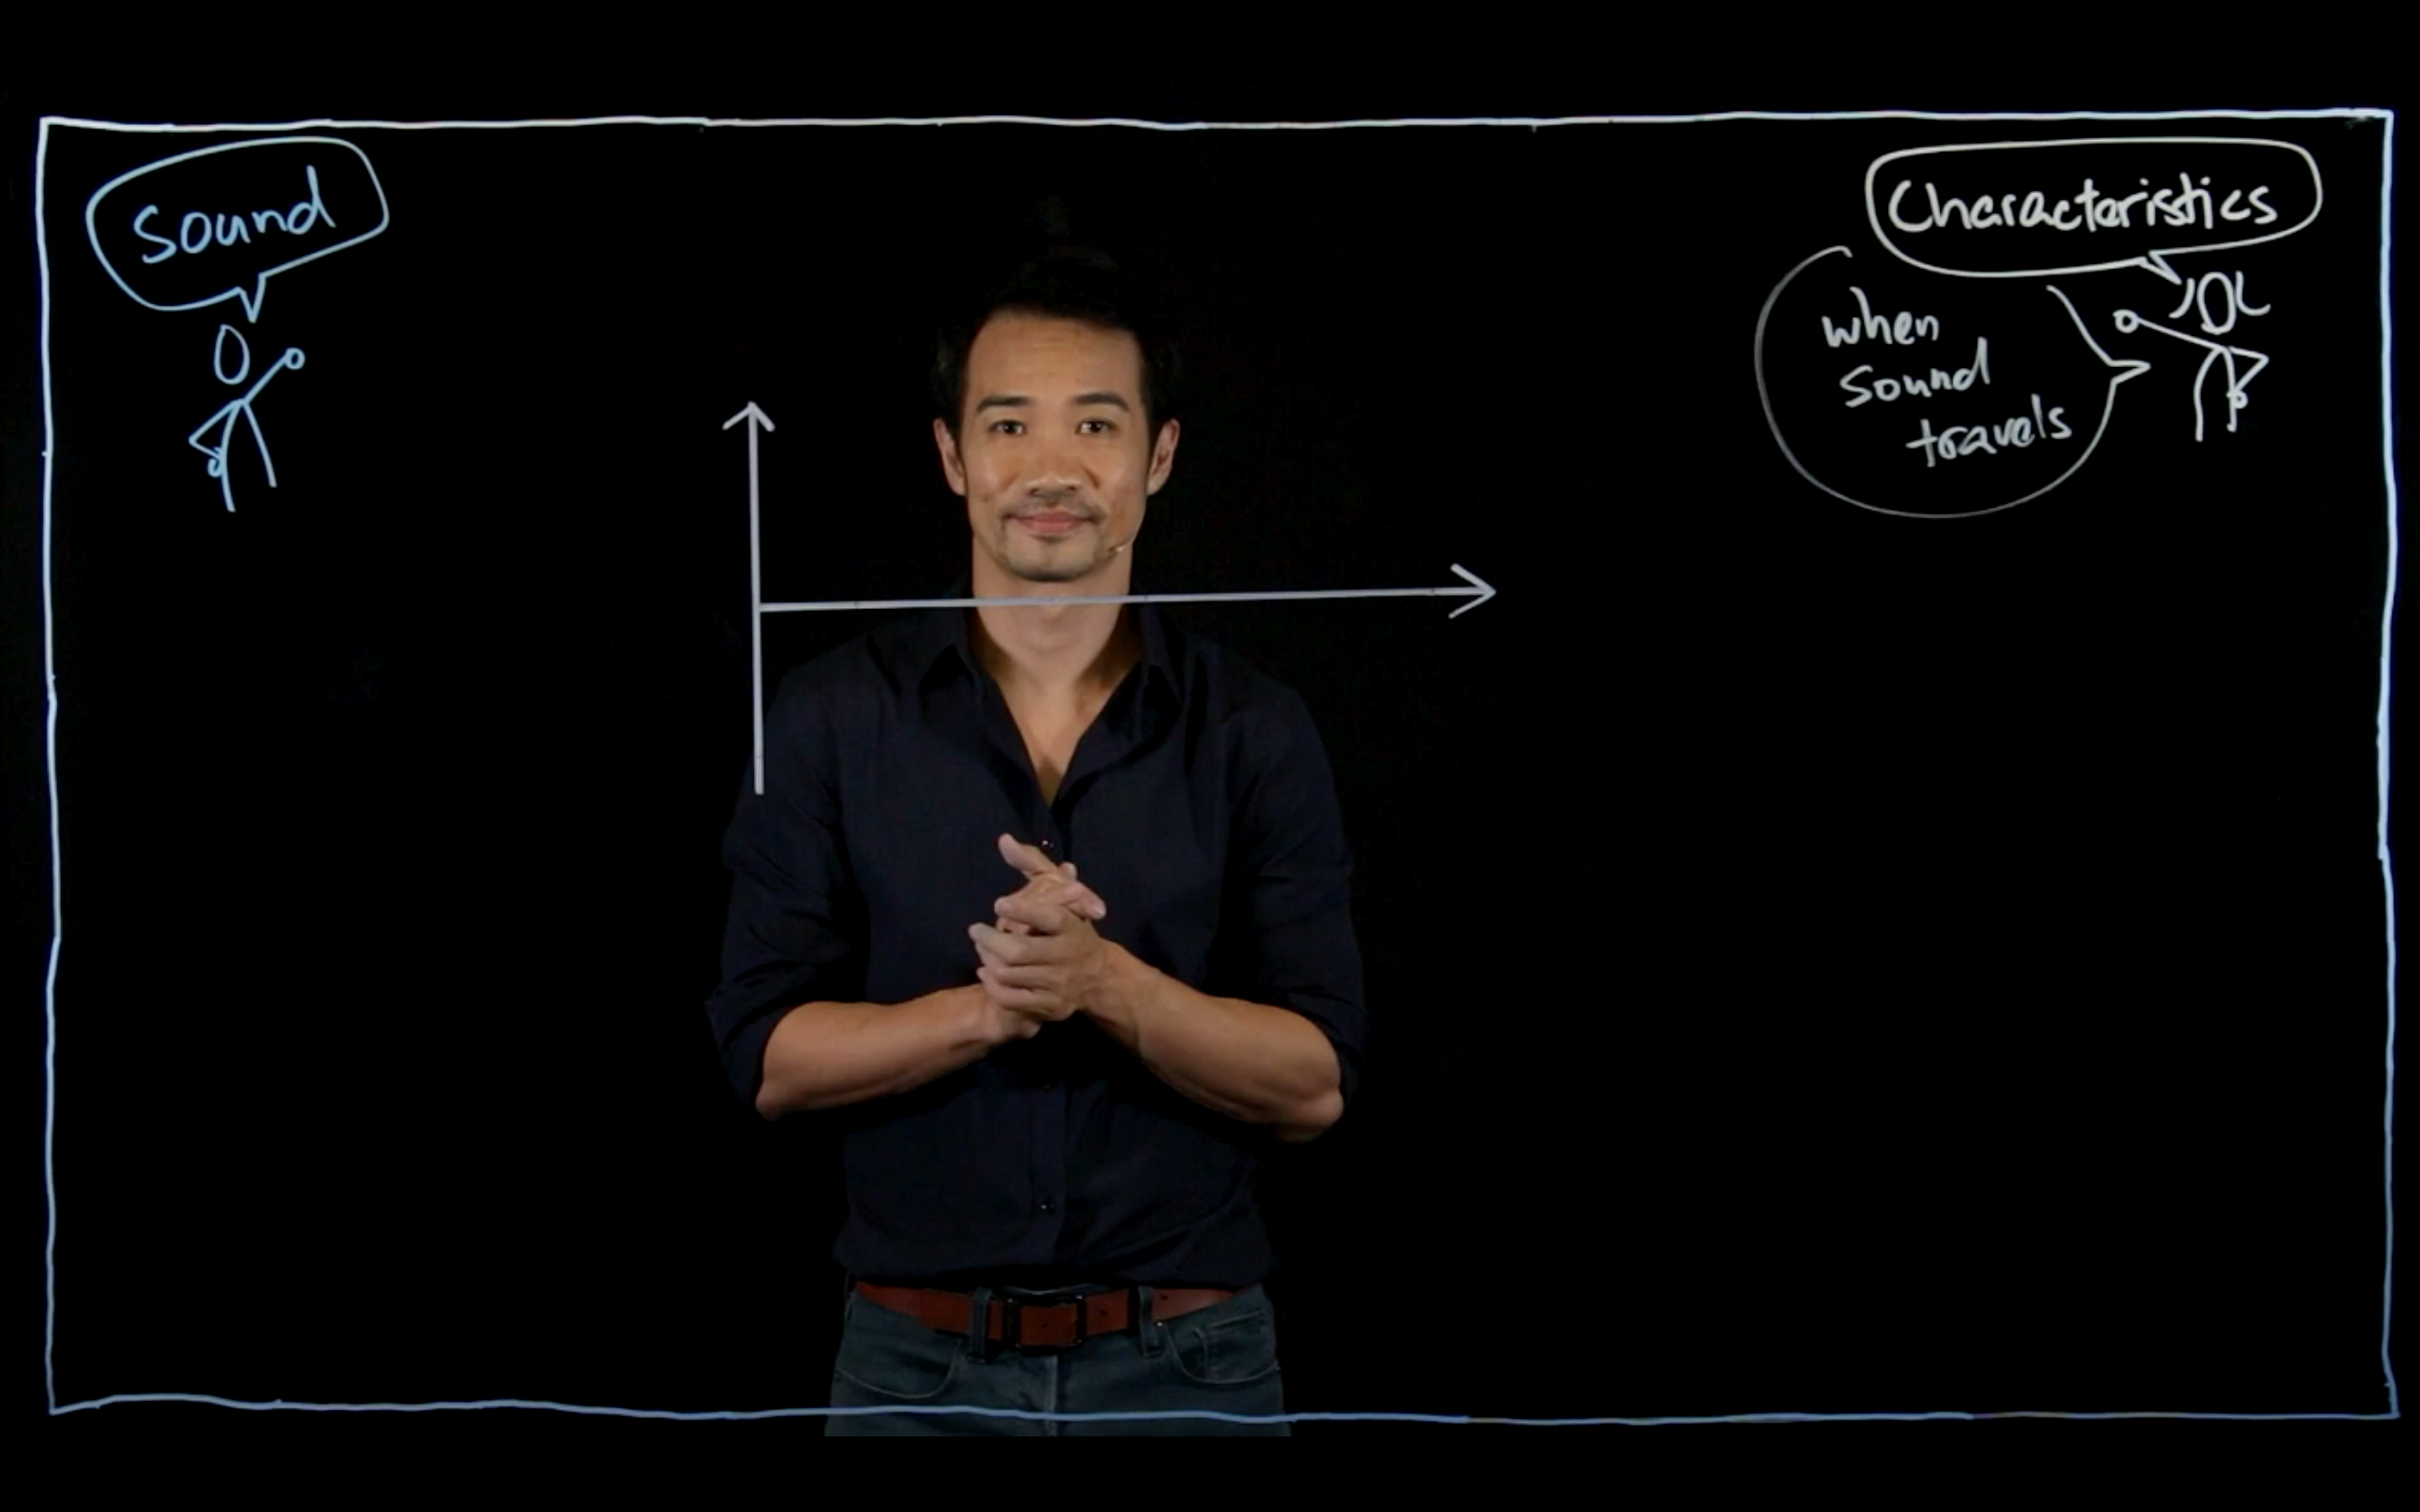 Sound
Characteristics
when
sound
travels